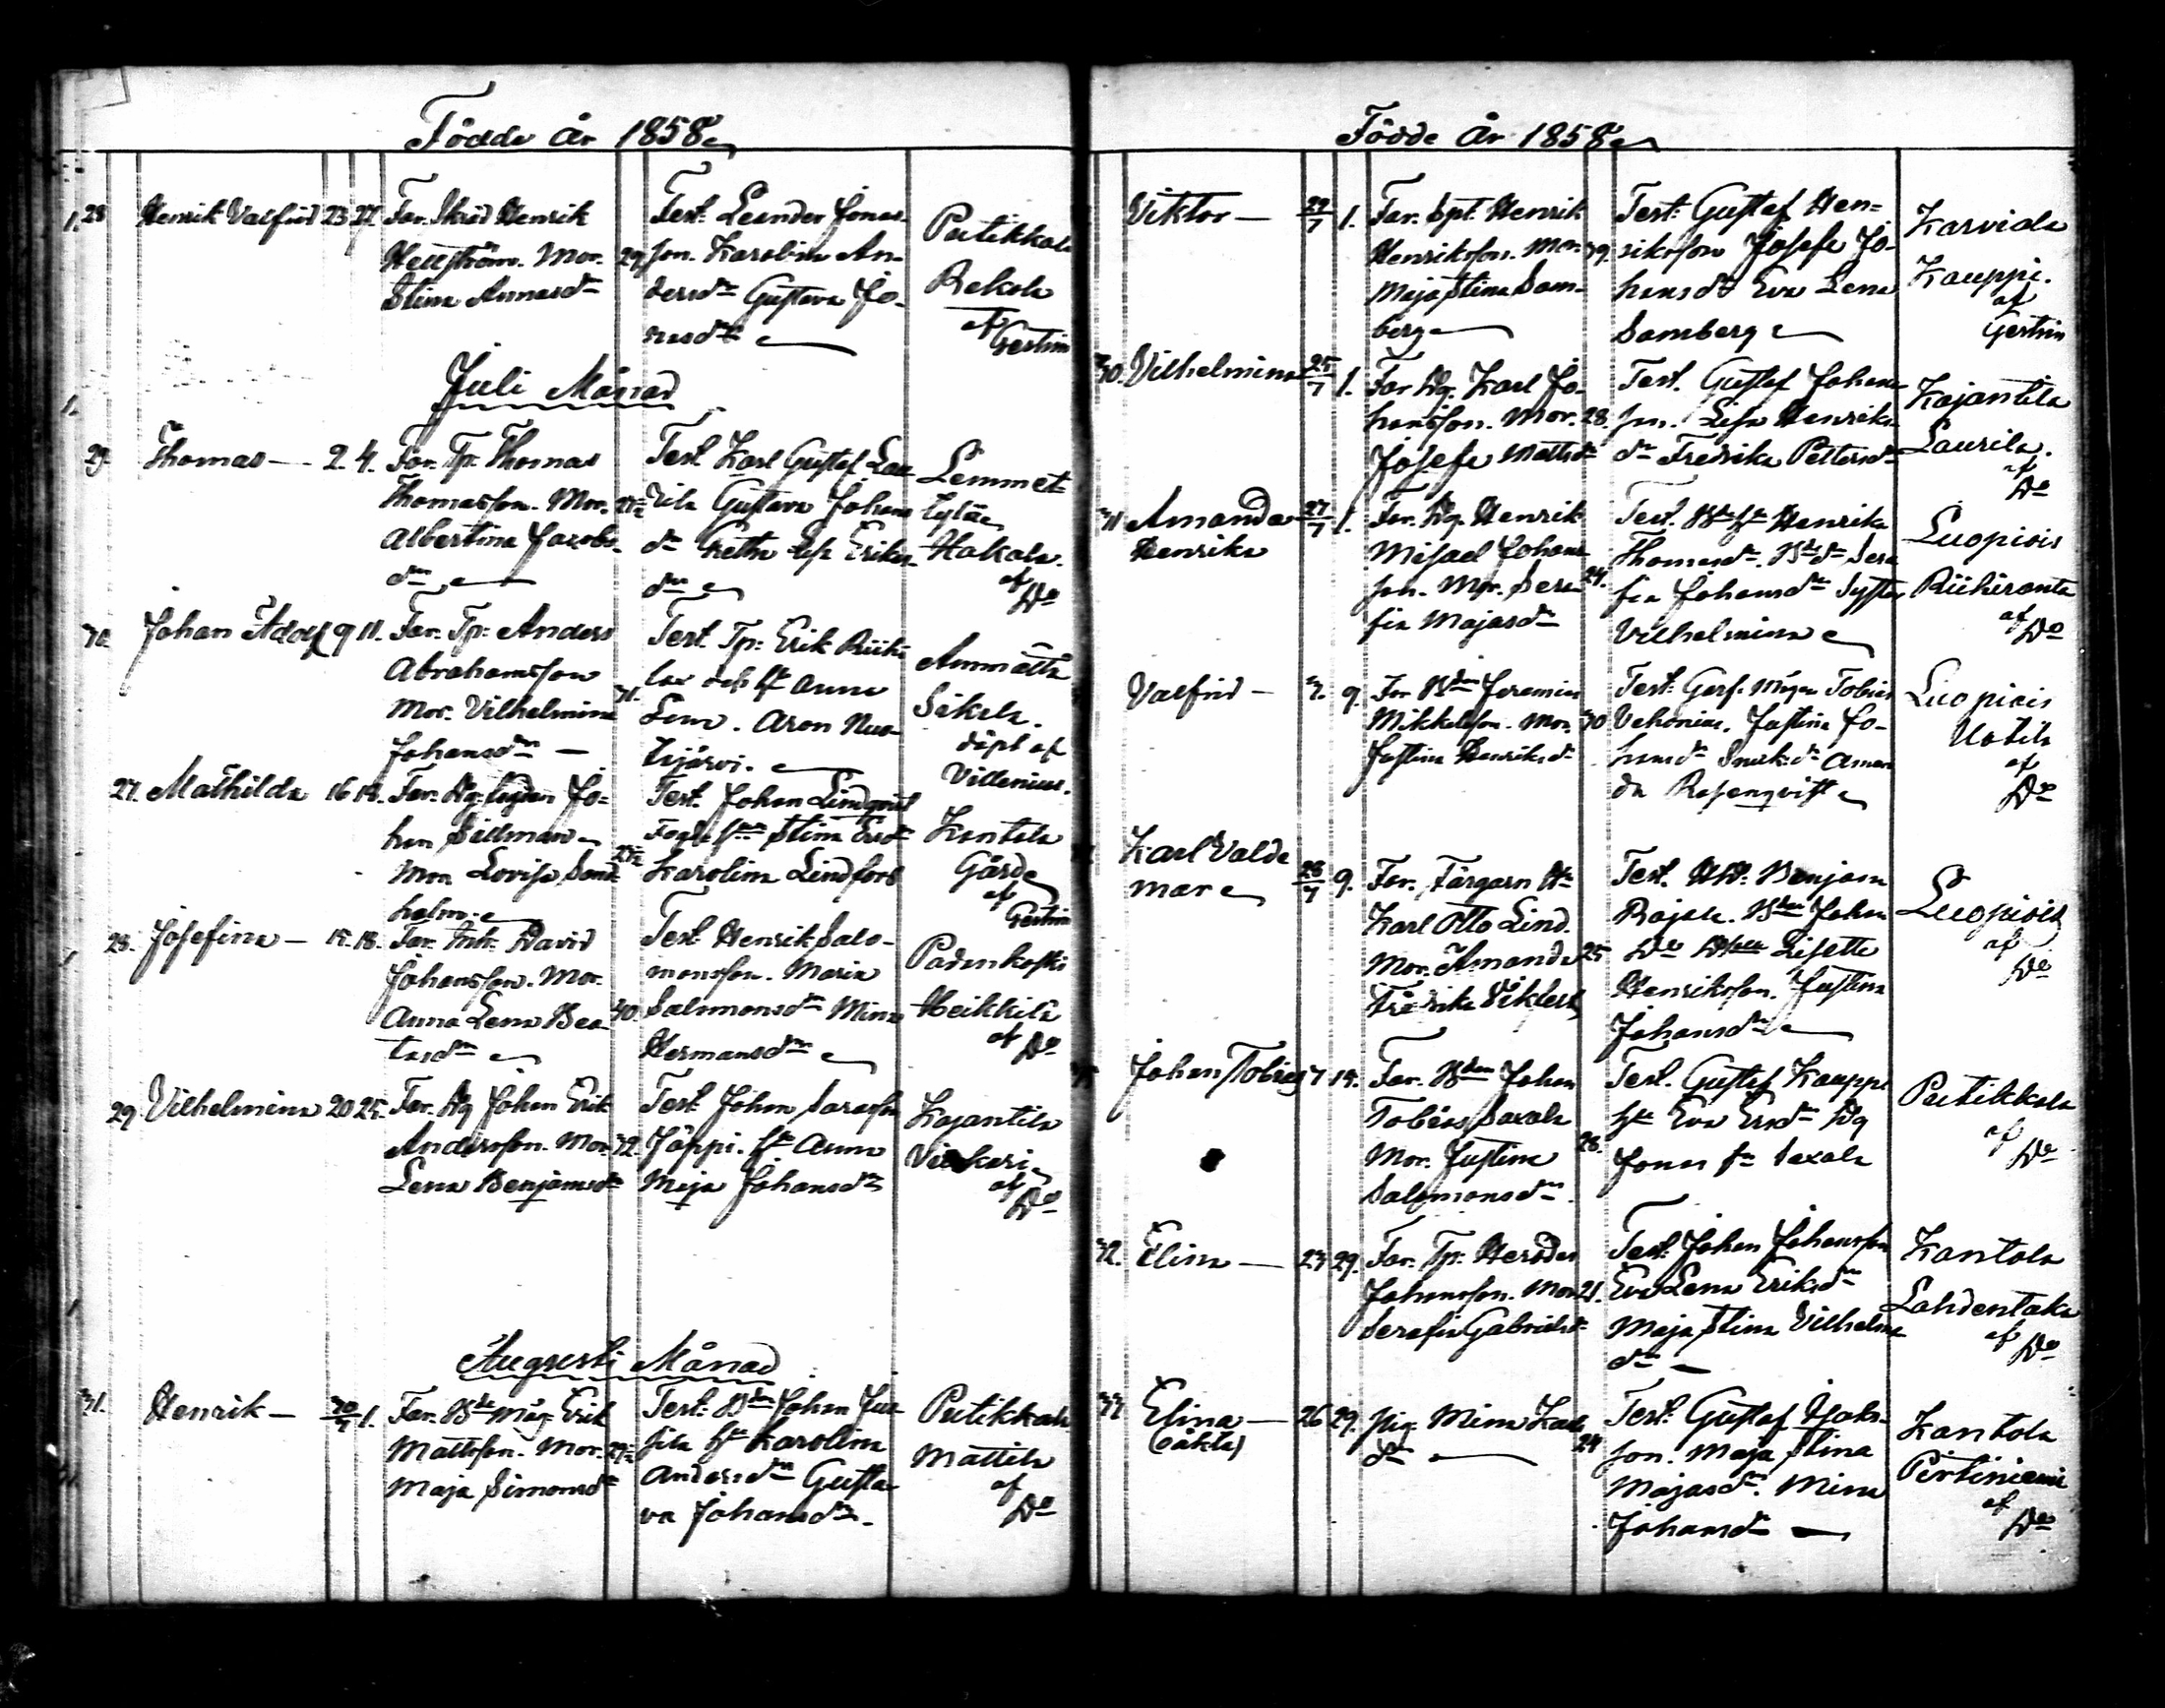 Födde år 1858
28 Henrik Valfrid 23 27. Far. Skräd Henrik
Hellström. Mor. 29
Stina Annasdr
Test. Leander Jonas-
son. Karolina An-
dersdr Gustava Jo-
nasdr
Putikkala
Rekola
af
Gestrin
Juli Månad
29. Thomas — 2. 4. Far. Tp. Thomas
Thomasson. Mor.
Albertina Jacobs-
dr
Test. Karl Gustaf Lau
rila Gustava Johans
dr Greta Lisa Eriks-
dr
Lemmet
tylä
Hakala.
af
Do
30. Johan Adolf 9 11. Far. Tp. Anders
Abrahamsson
Mor. Vilhelmina 31.
Johansdr —
Test. Tp. Erik Riiki
lax och h Anna
Lena. Aron Nus-
tijärvi.
Ammättä
Sikala.
döpt af
Villenius.
27. Mathilda 16 18. Far. Jo-
han Sillman
Mor. Lovisa Sand
holm.
Test. Johan Lindqvist
Stina Ersdr
Karolina Lindfors
Kantola
Gård
af
Gestrin
28. Josefina — 15. 18. Far. Inh. David
Johansson. Mor.
Anna Lena Bea- 40.
tasdr
Test. Henrik Salo-
monsson. Maria
Salomonsdr Mina
Hermansdr
Padankoski
Heikkilä
af Do
29. Vilhelmina 20 25. Far. Dg Johan Erik
Andersson. Mor. 32.
Lena Benjamsdr
Test. Johan Sarasson
Jöppi. h. Anna
Maja Johansdr
Kajantila
af
Do
Augusti Månad
31. Henrik — 30/7 1. Far. Bde Måg Erik
Mattsson. Mor.
Maja Simonsdr
Test. Bden Johan Jus
sila he Karolina
Andersdr Gusta-
va Johansdr.
Putikkala
Mattila
af
Do
Födde år 1858
Viktor — 29/7 1. Far. Spt. Henrik
Henriksson. Mor. 39.
Maja Stina Sam-
berg
Test. Gustaf Hen-
riksson Josefa Jo-
hansdr Eva Lena
Samberg
Karviala
Kauppi.
af
Gestrin
30. Vilhelmina 25/7 1. Far Dg. Karl Jo-
hansson. Mor. 28.
Josefa Mattsdr
Test. Gustaf Johans
son. Lisa Henriks
dr Fredrika Pettersdr
Kajantila
Laurila.
af
Do
31 Amanda 27/7 1.
Henrika
Far. Dg. Henrik
Misael Johans
son. Mor. Sera- 24.
fia Majasdr
Test. Henrika
Thomasdr. Sera
fia Johansdr
Vilhelmina
Luopiois
Riihiranta
af Do
Valfrid — 3. 9. Far Bden Jeremias
Mikkelsson. Mor. 30
Justina Henriksdr
Test. Tobias
Vehonius. Justina Jo-
hansdr Aman
da Rosenqvist
Luopiois
Uotila
af
Do
Karl Valde
mar 28/7 9. Far. Färgarn
Karl Otto Lind.
Mor. Amanda 25
Fredrika
Test. Benjam
Rajala. Bden Johan
Do Lisette
Henriksson. Justina
Johansdr
Luopiois
af
Do
Johan Tobias 7 15. Far. Bden Johan
Tobias Saxala
Mor. Justina 28.
Salomonsdr.
Test. Gustaf Kauppi
he Eva Ersdr Dg
Jonas Saxala
Putikkala
af
Do
32. Elina — 23 29. Far. Tp. Herodes
Johansson. Mor 21.
Serafia Gabrielsdr
Test. Johan Johansson
Eva Lena Eriksdr
Maja Stina Vilhelms
dr —
Kantola
Lahdentaka
af
Do
33 Elina — 26 29. Pig. Mina Karls
(oäkta) dr — 24
Test. Gustaf Isaks-
son. Maja Stina
Majasdr. Mina
Johansdr —
Kantola
Pirtiniemi
af
Do